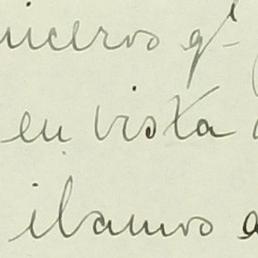 niceros qᵉ
en vista
ibamos a